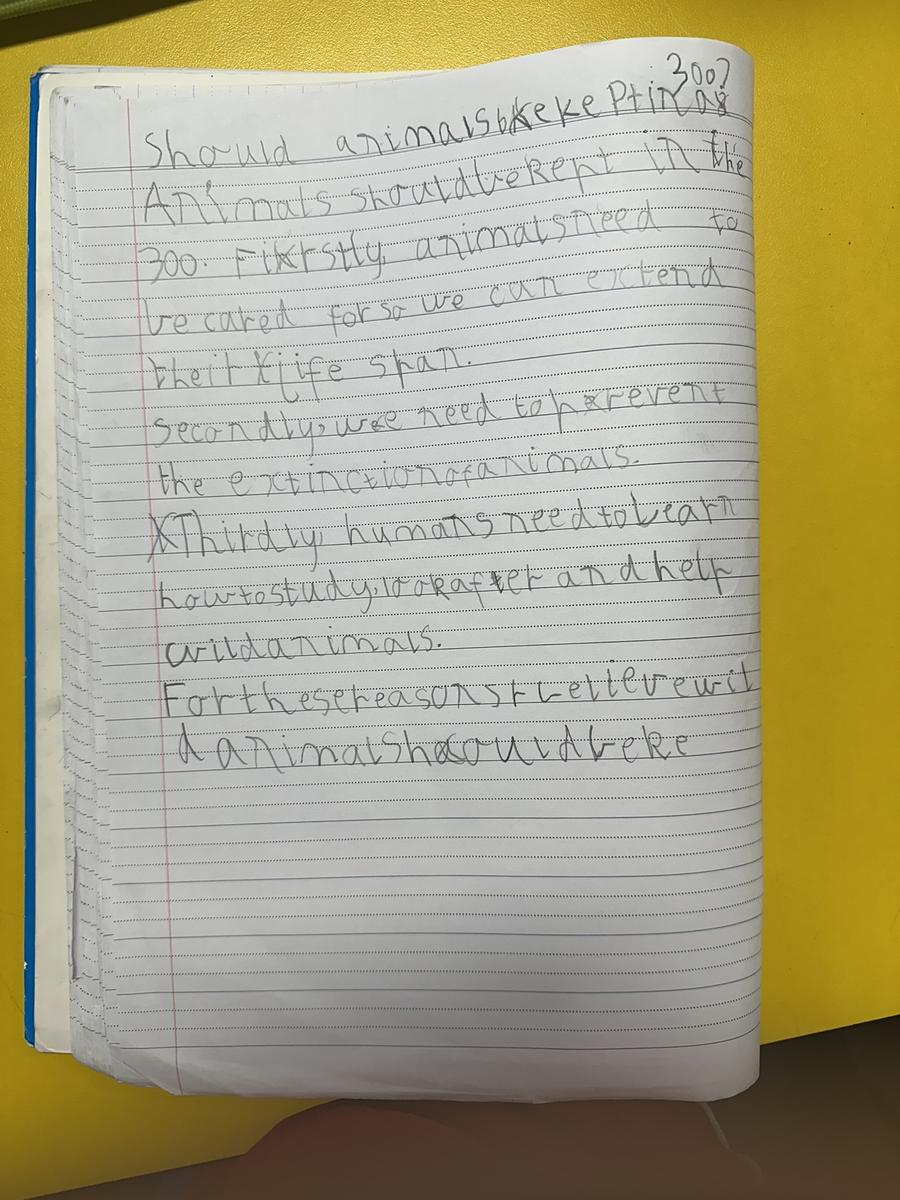 Should animals be kept in a zoo?
Animals should be kept in the
zoo. Firstly, animals need to
be cared for so we can extend
their life span.
secondly, we need to prevent
the extinction of animals.
Thirdly, humans need to learn
how to study, look after and help
wild animals.
For these reasons I believe wil
d animal should be ke